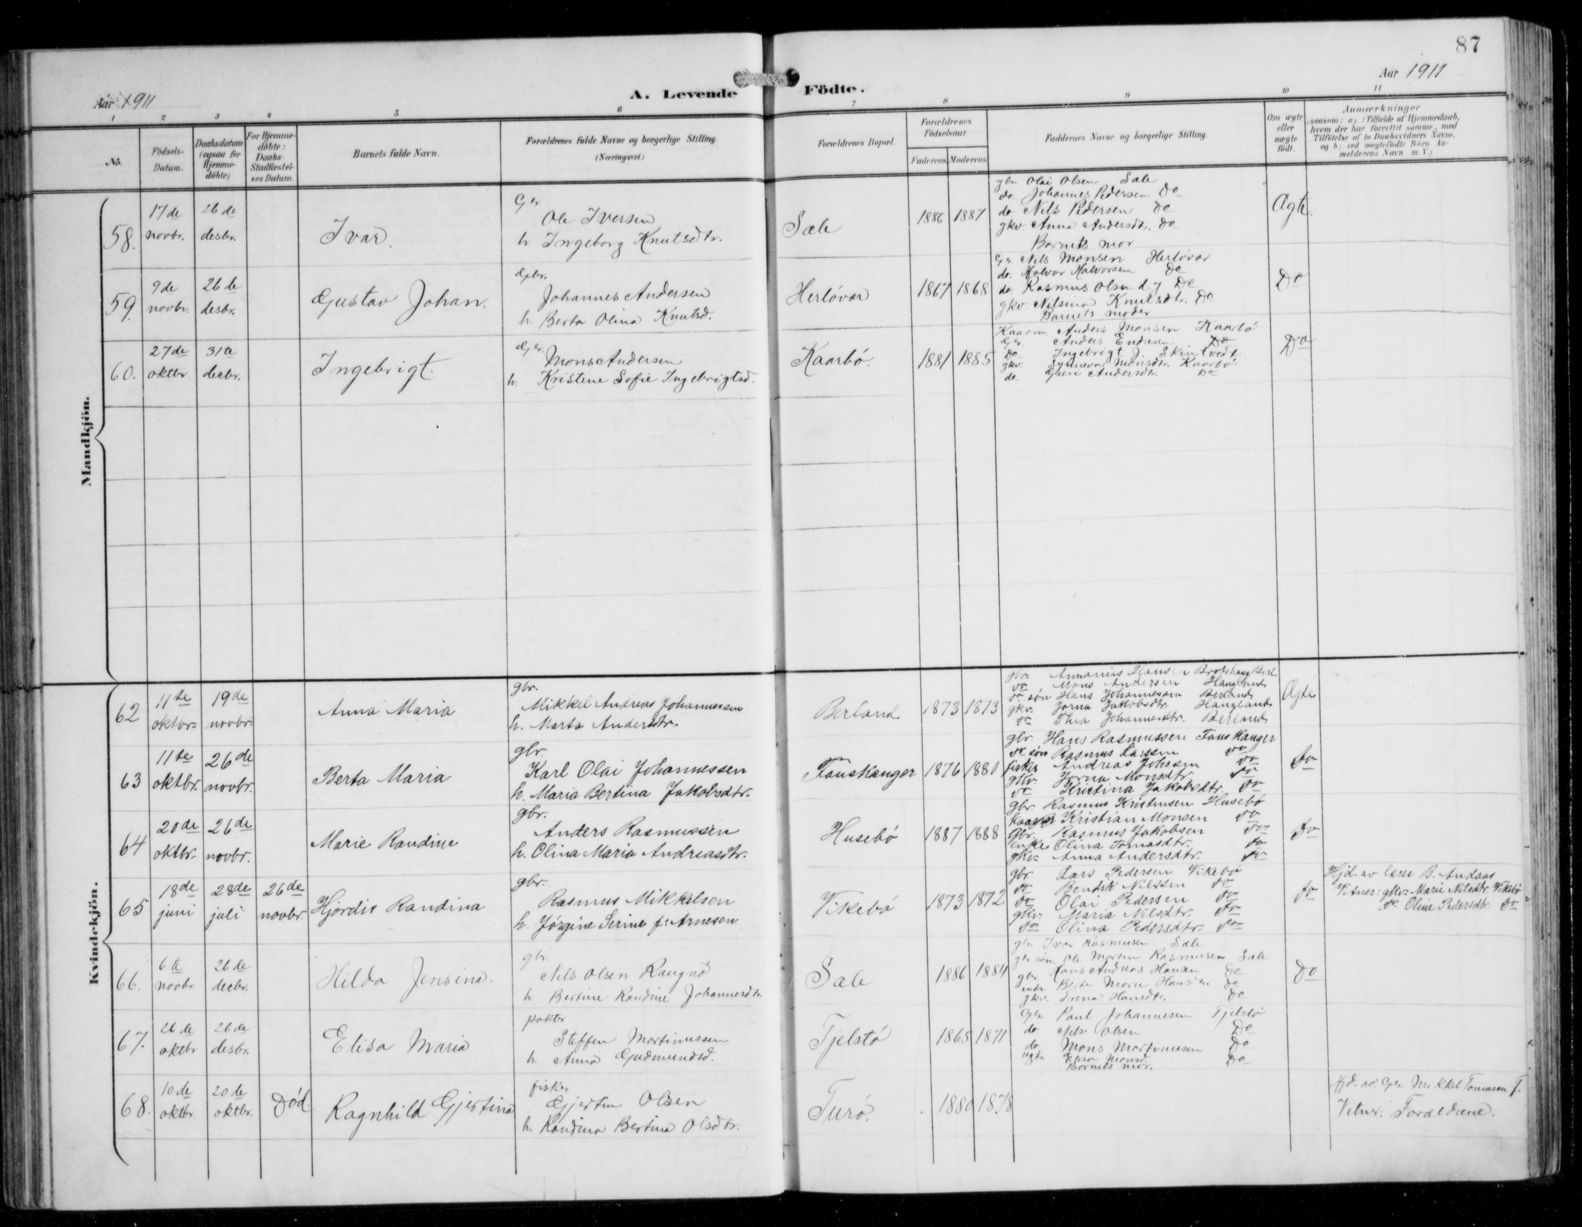 87
Aar 1911
A. Levende Födte.
Aar 1911
1 2 3 4 5 6 7 8 9 10 11
No.
Födsels-
Datum.
Daabsdatum
(ogsaa for
Hjemme-
döbte)
For Hjemme-
döbte:
Daabs-
Stadfæstel-
ses Datum.
Barnets fulde Navn.
Forældrenes fulde Navne og borgerlige Stilling.
(Næringsvei)
Forældrenes Bopæl.
Forældrenes
Födselsaar.
Faderens Moderens
Faddernes Navne og borgerlige Stilling.
Om ægte
eller
uægte
födt.
Anmærkninger
(saasom: a) i Tilfælde af Hjemmedaab,
hvem der har forrettet samme, med
Tilföielse af to Daabsvidners Navne,
og b) ved uægtefödte Börn An-
melderens Navn m. V.)
Mandkjön.
58.
17de
novbr.
26de
desbr.
Ivar.
Gbr.
Ole Iversen
h. Ingeborg Knutsdtr.
Sæle
1886 1887
gbr. Olai Olsen Sæle
do. Johannes Pedersen Do
do. Nils Pedersen Do
gkv. Anna Andersdtr. Do
Barnets mor
Ægte.
59.
9de
novbr.
26de
desbr.
Gustav Johan.
Gbr.
Johannes Andersen
h. Berta Olina Knutsd.
Herløvær
1867 1868
Gbr. Nils Monsen Herløvær
do. Halvor Halvorsen Do
do. Rasmus Olsen d.y. Do
gkv. Nilsina Knutsdtr. Do
Barnets moder
Do
60.
27de
oktbr.
31te
decbr.
Ingebrigt.
Gbr.
Mons Andersen
h. Kristine Sofie Ingebrigtsd.
Kaarbø
1881 1885
Kaarm. Anders Monsen Kaarbø
Gbr. Anders Endresen Do
Do Ingebrigt J. Skintveit
gkv. Synneva Monsdtr. Kaarbø
do. Guri Andersdtr. Do
Do
Kvindekjön.
62
11te
oktbr.
19de
novbr.
Anna Maria
gbr.
Mikkel Andreas Johannessen
h. Marta Andersdtr.
Berland
1873 1873
do Mons Andersen Hanglands
do søn Hans Johannessen Berland
gkv. Jorna Jakobsdtr. Hangland
do Thea Johannesdtr. Berland
Ægte
63
11te
oktbr.
26de
novbr.
Berta Maria
gbr.
Karl Olai Johannessen
h. Maria Bertina Jakobsdtr.
Fauskanger
1876 1880
gbr. Hans Rasmussen Fauskanger
do søn Rasmus Larssen do
fisker Andreas Johssen do
gkv. Jorna Monsdtr. do
do Kristina Jakobsdtr. do
do
64
20de
oktbr.
26de
novbr.
Marie Randine
gbr.
Anders Rasmussen
h. Olina Maria Andreasdtr.
Husebø
1887 1888
gbr. Rasmus Kristensen Husebø
Kaarm Kristian Monsen do
Gbr. Rasmus Jakobsen do
enke Olina Tomasdtr. do
gkv. Anna Andersdtr. do
do
65
18de
juni
28de
juli
26de
novbr
Hjordis Randina
gbr.
Rasmus Mikkelsen
h. Jörgine Serine f. Arnesen
Vikebø
1873 1872
gbr. Lars Pedersen Vikebø
do Bendik Nilssen do
do Olai Pedersen do
gkv. Maria Nilsdtr. do
do Olina Pedersdtr. do
do
Hjd. av lærer B. Andaas
Vitner: gkv. Marie Nilsdtr. Vikebø
do Oline Pedersdtr. do
66.
6te
novbr.
26de
decbr.
Hilda Jensina.
gbr.
Nils Olsen Raugnø
h Bertine Randine Johannesdtr.
Sæle
1886 1884
gbr. Ivar Rasmusen Sæle
gbr. søn. Ole Morten Rasmusen Sæle
gbr. Hans Andreas Hansen Do
enke Berte Marie Hansen Do
gkv. Anna Hansdtr. Do
Do
67.
26de
oktbr
26de
desbr.
Elisa Maria
pakter
Steffen Martinussen
h Anna Gudmundsd.
Tjelstø
1865 1871
Gbr. Paul Johannesen Tjelstø
do. Nils Olsen Do
do Mons Martinusen Do
ugk. Elisa Monsd. Do
Barnets mor.
68.
10de
oktbr.
20de
oktbr.
Död
Ragnhild Gjertina
fisker
Gjertin Olsen
h. Randina Bertina Olsdtr.
Turø.
1880 1878
Hjd. av Gbr. Mikkel Tomasen T.
Vitner: Forældrene.